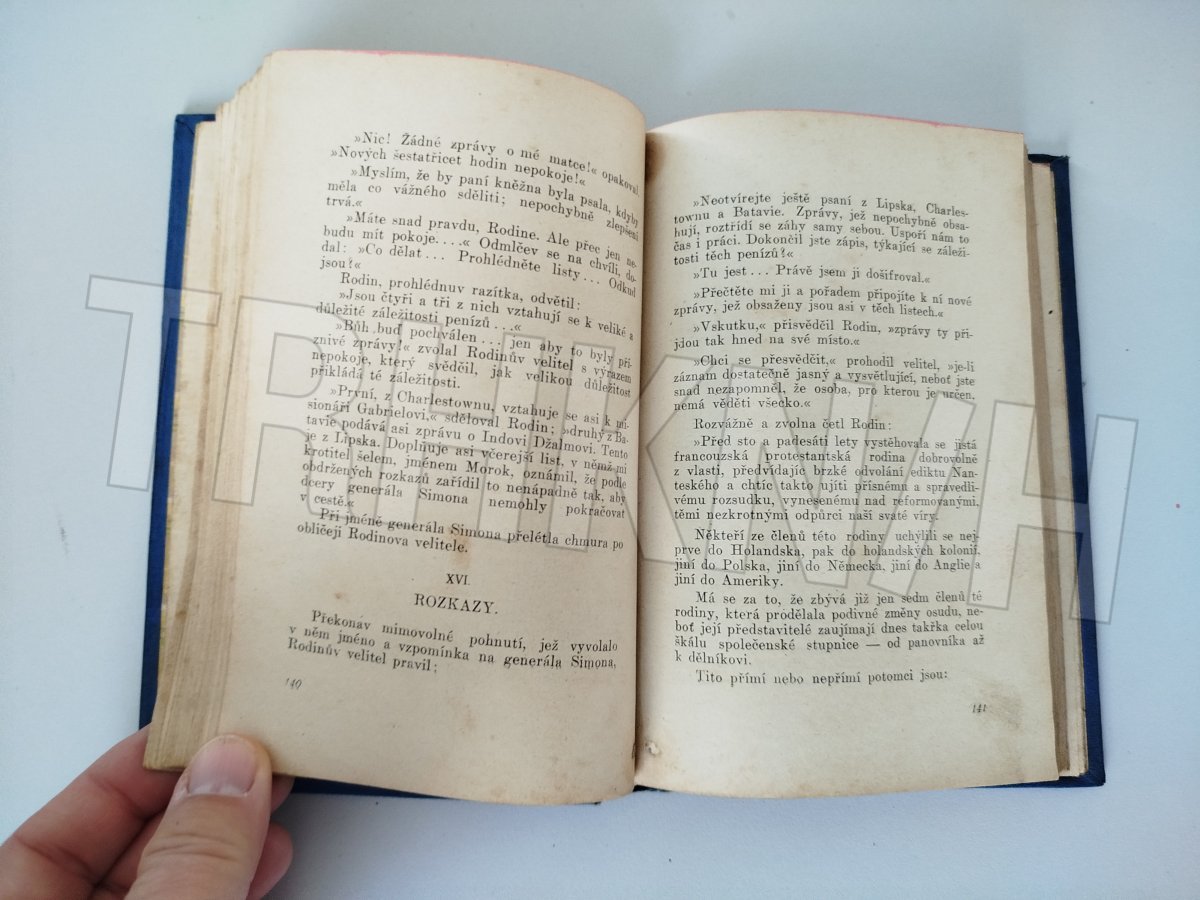 »Nic! Žádné zprávy o mé matce!« opakoval
»Nových šestatřicet hodin nepokoje!«
»Myslím, že by paní kněžna byla psala, kdyby
měla co vážného sděliti; nepochybně zlepšení
trvá.«
»Máte snad pravdu, Rodine. Ale přec jen ne-
budu mít pokoje. . . .« Odmlčev se na chvíli, do-
dal: »Co dělat . . . Prohlédněte listy . . . Odkud
jsou?«
Rodin, prohlédnuv razítka, odvětil:
»Jsou čtyři a tři z nich vztahují se k veliké a
důležité záležitosti penízů . . .«
»Bůh buď pochválen . . . jen aby to byly pří-
znivé zprávy!« zvolal Rodinův velitel s výrazem
nepokoje, který svědčil, jak velikou důležitost
přikládá té záležitosti.
»První, z Charlestownu, vztahuje se asi k mi-
sionáři Gabrielovi,« sděloval Rodin; »druhý z Ba-
tavie podává asi zprávu o Indovi Džalmovi. Tento
je z Lipska. Doplňuje asi včerejší list, v němž mi
krotitel šelem, jménem Morok, oznámil, že podle
obdržených rozkazů zařídil to nenápadně tak, aby
dcery generála Simona nemohly pokračovat
v cestě.«
Při jméně generála Simona přelétla chmura po
obličeji Rodinova velitele.
XVI.
ROZKAZY.
Překonav mimovolné pohnutí, jež vyvolalo
v něm jméno a vzpomínka na generála Simona,
Rodinův velitel pravil:
140
»Neotvírejte ještě psaní z Lipska, Charles-
townu a Batavie. Zprávy, jež nepochybně obsa-
hují, roztřídí se záhy samy sebou. Uspoří nám to
čas i práci. Dokončil jste zápis, týkající se záleži-
tosti těch penízů?«
»Tu jest . . . Právě jsem ji došifroval.«
»Přečtěte mi ji a pořadem připojíte k ní nové
zprávy, jež obsaženy jsou asi v těch listech.«
»Vskutku,« přisvědčil Rodin, »zprávy ty při-
jdou tak hned na své místo.«
»Chci se přesvědčit,« prohodil velitel, »je-li
záznam dostatečně jasný a vysvětlující, neboť jste
snad nezapomněl, že osoba, pro kterou je určen,
nemá věděti všecko.«
Rozvážně a zvolna četl Rodin:
»Před sto a padesáti lety vystěhovala se jistá
francouzská protestantská rodina dobrovolně
z vlasti, předvídajíc brzké odvolání ediktu Nan-
teského a chtíc takto ujíti přísnému a spravedli-
vému rozsudku, vynesenému nad reformovanými,
těmi nezkrotnými odpůrci naší svaté víry.
Někteří ze členů této rodiny uchýlili se nej-
prve do Holandska, pak do holandských kolonií,
jiní do Polska, jiní do Německa, jiní do Anglie a
jiní do Ameriky.
Má se za to, že zbývá již jen sedm členů té
rodiny, která prodělala podivné změny osudu, ne-
boť její představitelé zaujímají dnes takřka celou
škálu společenské stupnice — od panovníka až
k dělníkovi.
Tito přímí nebo nepřímí potomci jsou:
141
TRHKNIH